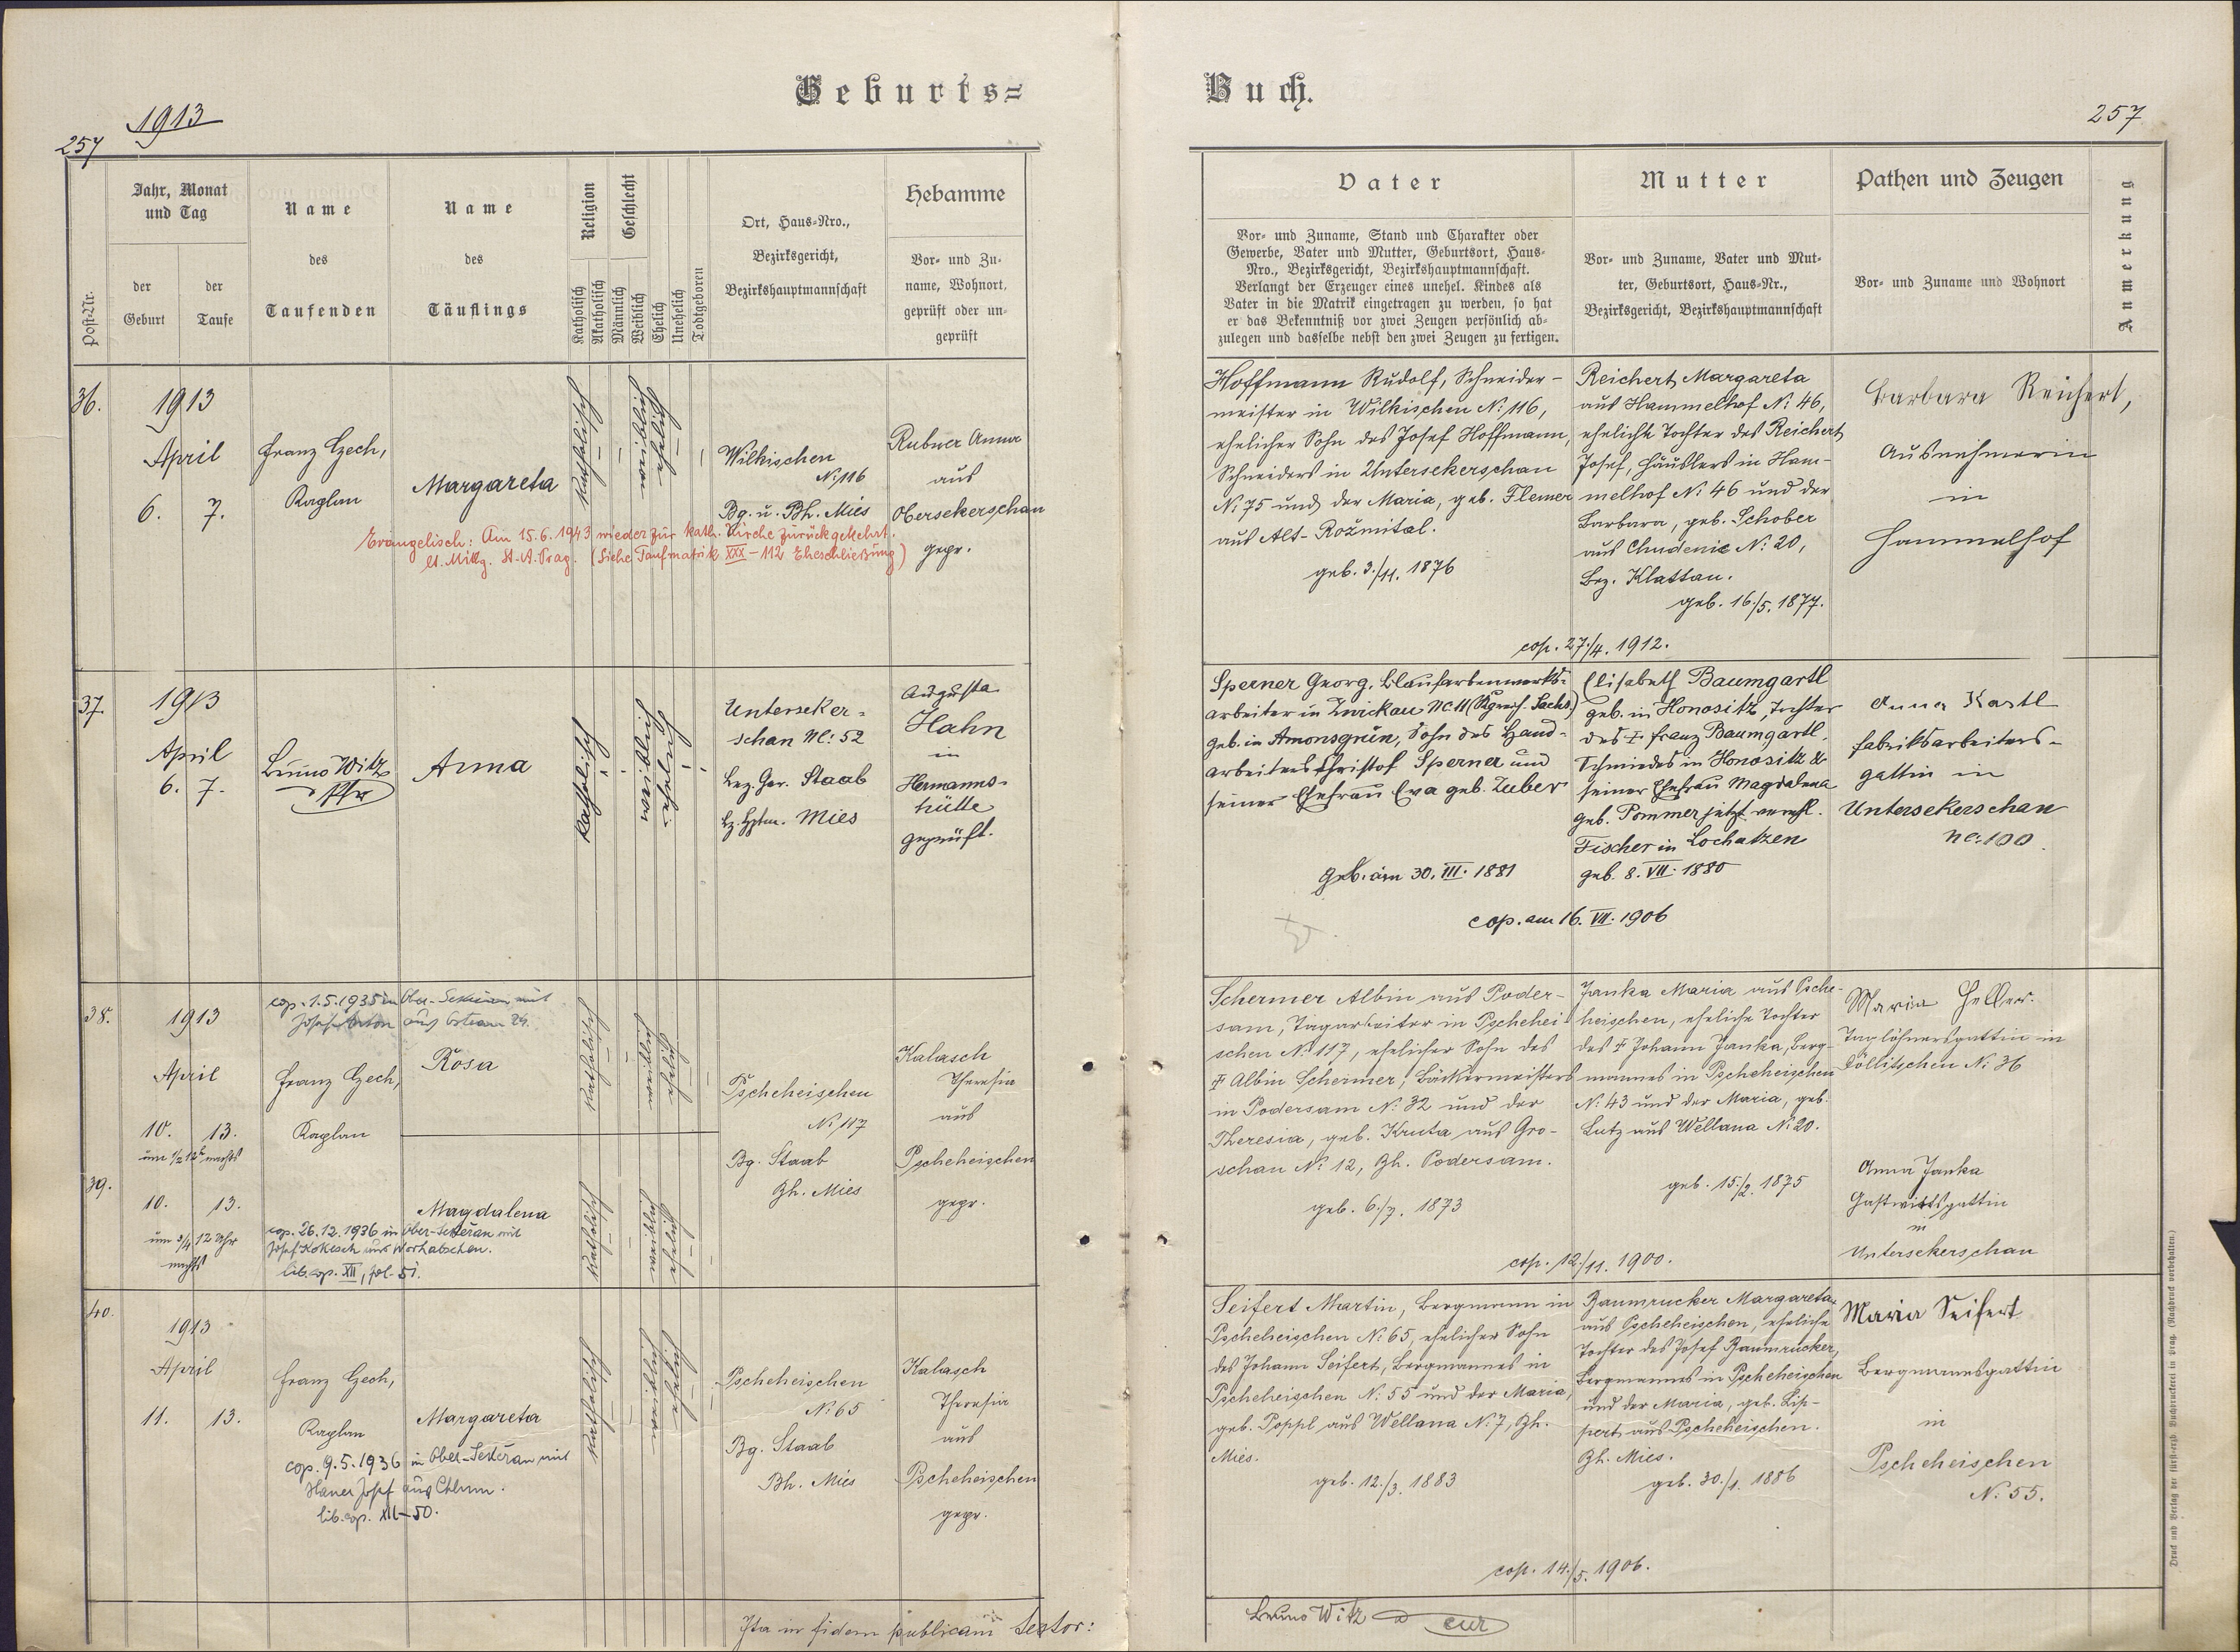 Geburts=
Buch.
1913
257
257
Post-Nr.
Jahr, Monat
und Tag
der
Geburt
der
Taufe
Name
des
Taufenden
Name
des
Täuflings
Religion
Katholisch
Akatholisch
Geschlecht
Männlich
Weiblich
Ehelich
Unehelich
Todtgeboren
Ort, Haus-Nro.,
Bezirksgericht,
Bezirkshauptmannschaft
Hebamme
Vor- und Zu-
name, Wohnort,
geprüft oder un-
geprüft
Vater
Vor- und Zuname, Stand und Charakter oder
Gewerbe, Vater und Mutter, Geburtsort, Haus-
Nro., Bezirksgericht, Bezirkshauptmannschaft.
Verlangt der Erzeuger eines unehel. Kindes als
Vater in die Matrik eingetragen zu werden, so hat
er das Bekenntniß vor zwei Zeugen persönlich ab-
zulegen und dasselbe nebst den zwei Zeugen zu fertigen.
Mutter
Vor- und Zuname, Vater und Mut-
ter, Geburtsort, Haus-Nr.,
Bezirksgericht, Bezirkshauptmannschaft
Pathen und Zeugen
Vor- und Zuname und Wohnort
Anmerkung
36.
1913
April
6. 7.
Franz Czech,
Kaplan
Margareta
katholisch
weiblich
ehelich
Wilkischen
N: 116
Bg. u. Bh. Mies
Rubner Anna
aus
Obersekerschan
gepr.
Evangelisch: Am 15.6.1943 wieder zur kath. Kirche zurückgekehrt.
lt. Mittg. St. A. Prag. (Siehe Taufmatrik XXX - 112 Eheschließung)
Hoffmann Rudolf, Schneider-
meister in Wilkischen N: 116,
ehelicher Sohn des Josef Hoffmann,
Schneiders in Untersekerschan
N: 75 und der Maria, geb. Flemer
aus Alt-Rožmital.
geb. 3./11. 1876
Reichert Margareta
aus Hammelhof N: 46,
eheliche Tochter des Reichert
Josef, Häuslers in Ham-
melhof N: 46 und der
Barbara, geb. Schober
aus Chudenic N: 20,
Bez. Klattau.
geb. 16./5. 1877.
cop. 27./4. 1912.
Barbara Reichert,
Ausnehmerin
in
Hammelhof
37.
1913
April
6. 7.
Bruno Witz
Pfr
Anna
katholisch
weiblich
ehelich
Unterseker-
schan Nc: 52
Bez. Ger. Staab
Bz. Hptm. Mies
Augusta
Hahn
in
Hermanns-
hütte
geprüft.
Sperner Georg, Blaufarbenwerks-
arbeiter in Zwickau Nc 11 (Kgreich. Sachs.)
geb. in Amonsgrün, Sohn des Hand-
arbeiters Christof Sperner und
seiner Ehefrau Eva geb. Zuber
geb. am 30. III. 1881
Elisabeth Baumgartl
geb. in Honositz, Tochter
des † Franz Baumgartl,
Schmiedes in Honositz &
seiner Ehefrau Magdalena
geb. Pommer jetzt verehl.
Fischer in Lochutzen
geb. 8. VII. 1880
cop. am 16. VII. 1906
Anna Kastl
Fabriksarbeiters-
gattin in
Untersekerschan
nc: 100
38.
cop. 1.5.1935 in Ober-Sekeran mit
1913
April
10. 13.
um 1/2 12h nachts
Franz Czech,
Kaplan
Rosa
katholisch
weiblich
ehelich
Pscheheischen
N: 117
Bg. Staab
Bh. Mies
Kalasch
Theresia
aus
Pscheheischen
gepr.
Schermer Albin aus Poder-
sam, Tagarbeiter in Pschehei-
schen N: 117, ehelicher Sohn des
† Albin Schermer, Bäckermeisters
in Podersam N: 32 und der
Theresia, geb. Kruta aus Gro-
schau N: 12, Bh. Podersam.
geb. 6./7. 1873
Janka Maria aus Psche-
heischen, eheliche Tochter
des † Johann Janka, Berg-
mannes in Pscheheischen
N: 43 und der Maria, geb.
Lutz aus Wellana N: 20.
geb. 15./2. 1875
cop. 12./11. 1900.
Maria Heller.
Taglöhnersgattin in
Töllitschen N: 36
39.
10. 13.
um 3/4 12 Uhr
nachts
Magdalena
cop. 26.12.1936 in Ober-Sekeran mit
Josef Kokesch aus Worhabschen.
lib. cop. XII, fol. 51.
katholisch
weiblich
ehelich
Anna Janka
Gastwirtsgattin
in
Untersekerschan
40.
1913
April
11. 13.
Franz Czech,
Kaplan
Margareta
cop. 9.5.1936 in Ober-Sekeran mit
Hauer Josef aus Chlum.
lib. cop. XII-50.
katholisch
weiblich
ehelich
Pscheheischen
N: 65
Bg. Staab
Bh. Mies
Kalasch
Theresia
aus
Pscheheischen
gepr.
Seifert Martin, Bergmann in
Pscheheischen N: 65, ehelicher Sohn
des Johann Seifert, Bergmannes in
Pscheheischen N: 55 und der Maria,
geb. Poppl aus Wellana N: 7, Bh.
Mies.
geb. 12./3. 1883
Raumrucker Margareta
aus Pscheheischen, eheliche
Tochter des Josef Raumrucker,
Bergmannes in Pscheheischen
und der Maria, geb. Lip-
pert aus Pscheheischen.
Bh. Mies.
geb. 30./1. 1886
cop. 14./5. 1906.
Maria Seifert
Bergmannsgattin
in
Pscheheischen
N: 55.
Ita in fidem publicam testor:
Bruno Witz
cur
Druck und Verlag der fürst-erzb. Buchdruckerei in Prag. (Nachdruck vorbehalten.)